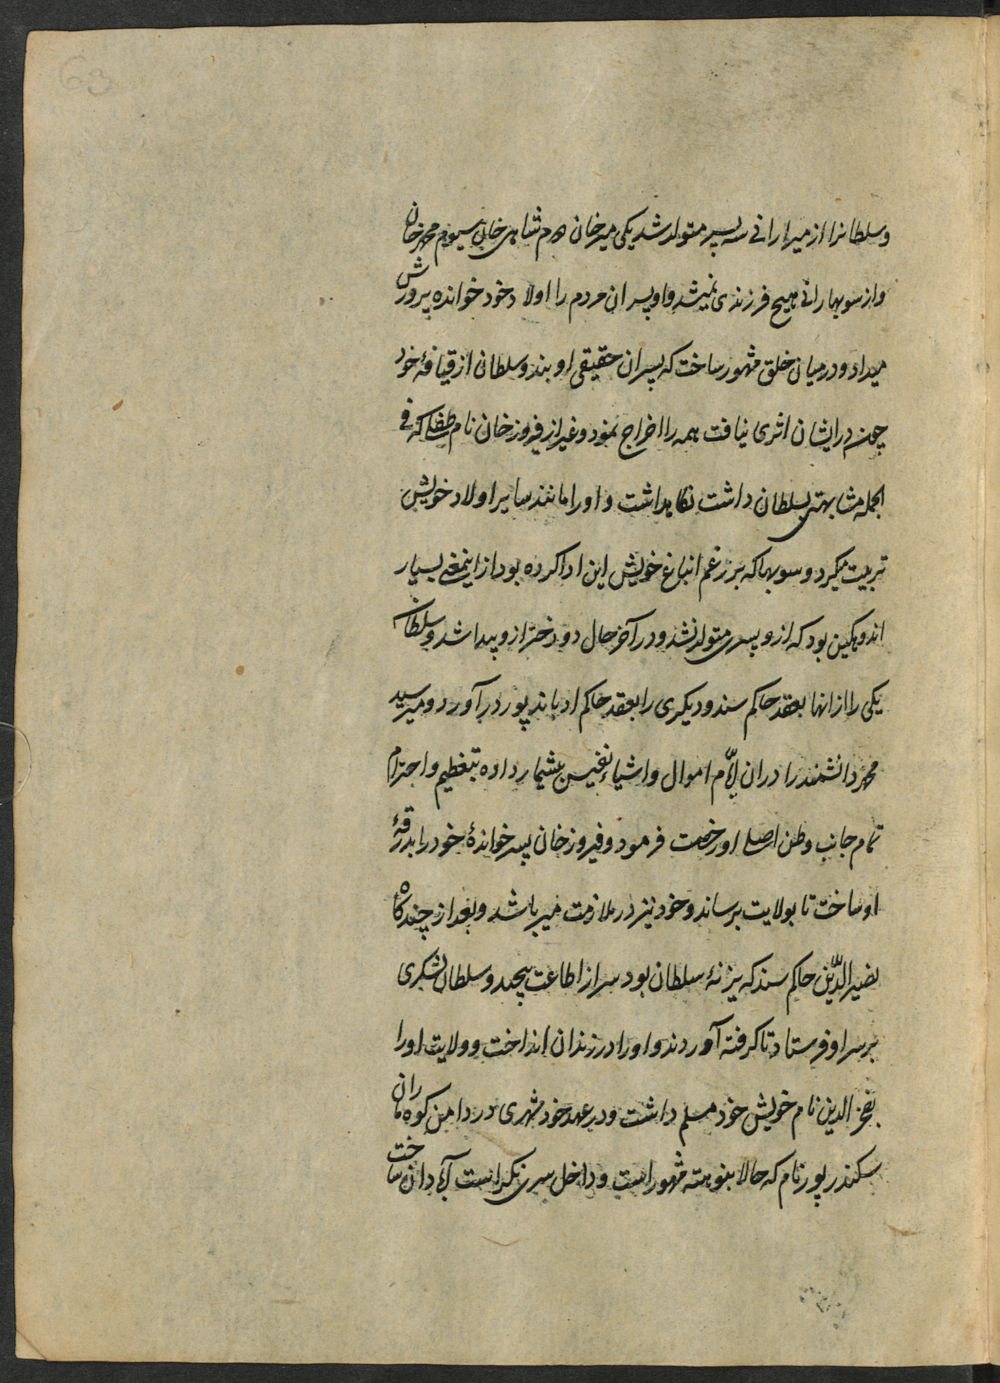 63
وسلطانرا از میرا رانی سه پسر متولد شد یکی میرخان دوم شاهی خان سیوم محمد خان
و از سوبها رانی هیچ فرزندی نمیشد و او پسران مردم را اولاد خود خوانده پرورش
میداد و در میان خلق مشهور ساخت که پسران حقیقی او بند و سلطان از قیافهٔ خود
چون در ایشان اثری نیافت همه را اخراج نمود و غیر از فیروز خان نام طفلی که فی
الجمله مشابهتی بسلطان داشت نکاهداشت و او را مانند سایر اولاد خویش
تربیت میکرد و سوبها که بر زغم انباغ خویش این ادا کرده بود از اینمعنی بسیار
اندوهکین بود که ازو پسری متولد نشد و در آخر حال دو دختر ازو پیدا شد و سلطان
یکی را از انها بعقد حاکم سند و دیکری را بعقد حاکم ادباند پور در آورد و میر سید
محمد دانشمند را در ان ایّام اموال و اشیاء نفیس بیشمار داده بتعظیم و احترام
تمام جانب وطن اصلی او رخصت فرمود و فیروز خان پسر خواندهٔ خود را بدرقهٔ
او ساخت تا بولایت برساند و خود نیز در ملازمت میر باشد و بعد از چندکاه
نصیر الدّین حاکم سند که یزنهٔ سلطان بود سر از اطاعت پیچید و سلطان لشکری
بر سر او فرستاد تا کرفته آوردند و او را در زندان انداخت و ولایت او را
بفخر الدین نام خویش خود مسلم داشت و در عهد خود شهری در دامن کوه ماران
سکندر پور نام که حالا بنوهته مشهور است و داخل سری نکر است آبادان ساخت